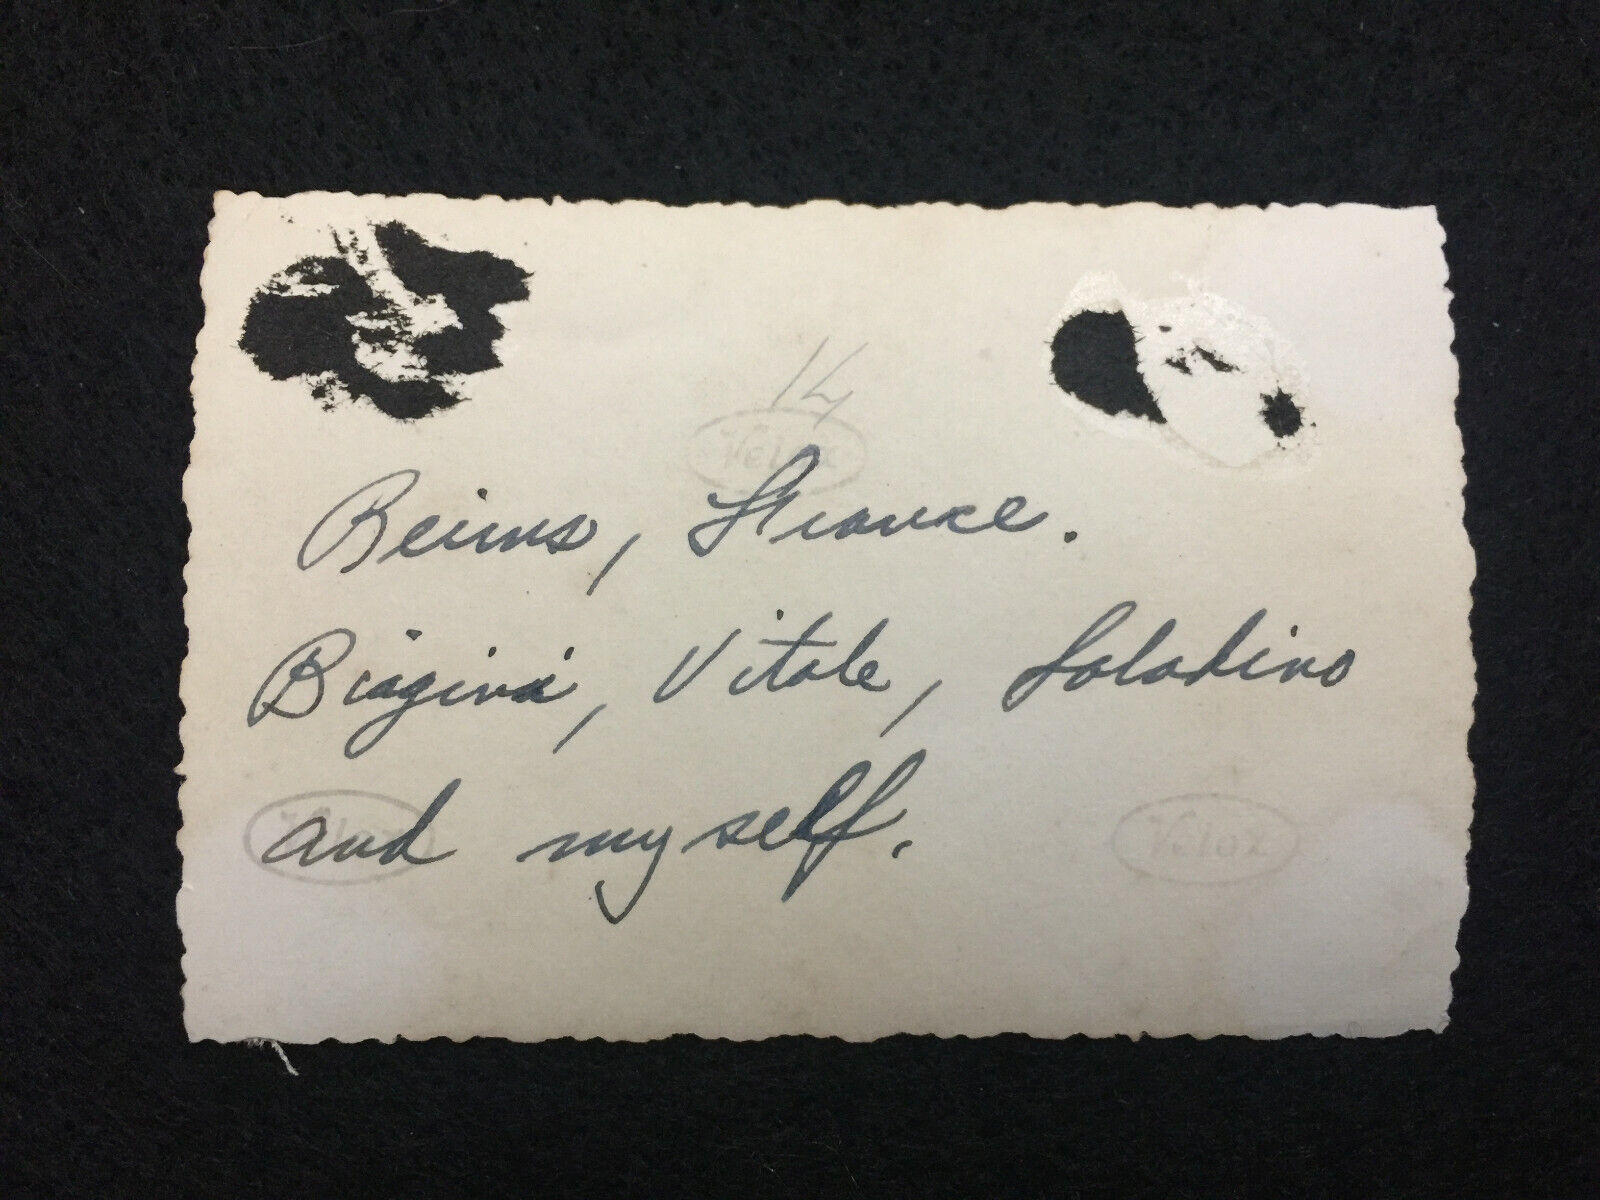 14
Velox
Reims, France.
Biagini, Vitale, Saladino
and myself.
Velox
Velox